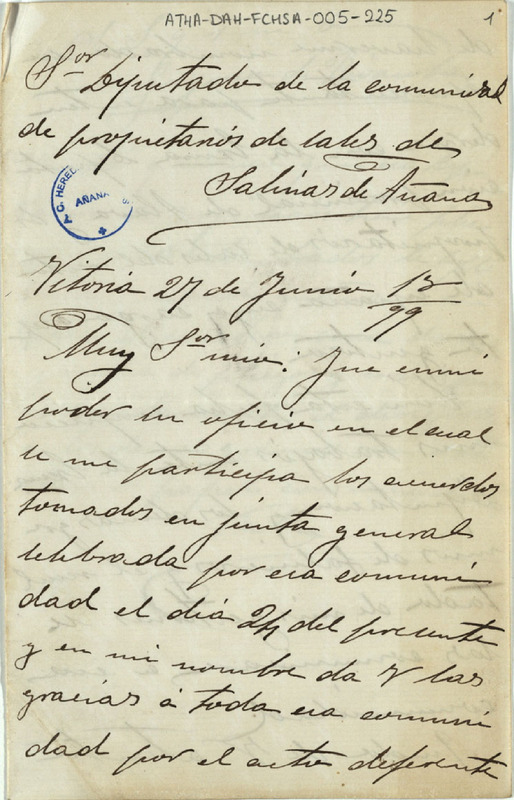 ATHA-DAH-FCHSA-005-225
1
Sor Diputado de la comunidad
de propietarios de sales de
Salinas de Añana
AÑANA
Vitoria 27 de Junio 18/99
Muy Sor mio: Que en mi
poder su oficio en el cual
se me participa los acuerdos
tomados en junta general
celebrada por esa comuni
dad el dia 24 del presente
y en mi nombre da V las
gracias á toda esa comuni
dad por el acto deferente